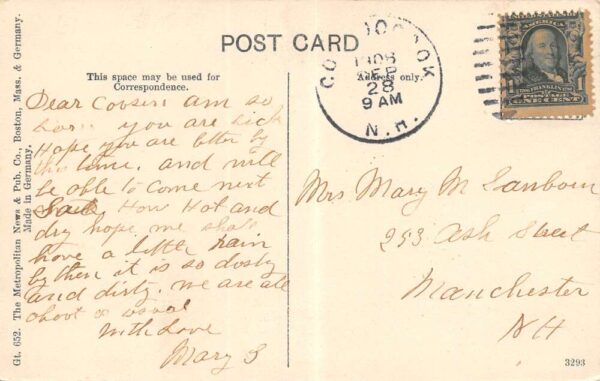 POST CARD
This space may be used for
Correspondence.
Address only.
Dear Cousin am so
sorry you are sick
Hope you are better by
this time. and will
be able to come next
Sat. How Hot and
dry hope we shall
have a little rain
by then it is so dusty
and dirty. we are all
about as usual
With Love
Mary S
CONTOOCOOK
1908
SEP
28
9 AM
N.H.
FRANKLIN
POSTAGE
ONE CENT
Mrs Mary M Sanborn
253 Ash Street
Manchester
NH
Gt. 652. The Metropolitan News & Pub. Co., Boston, Mass. & Germany.
Made in Germany.
3293